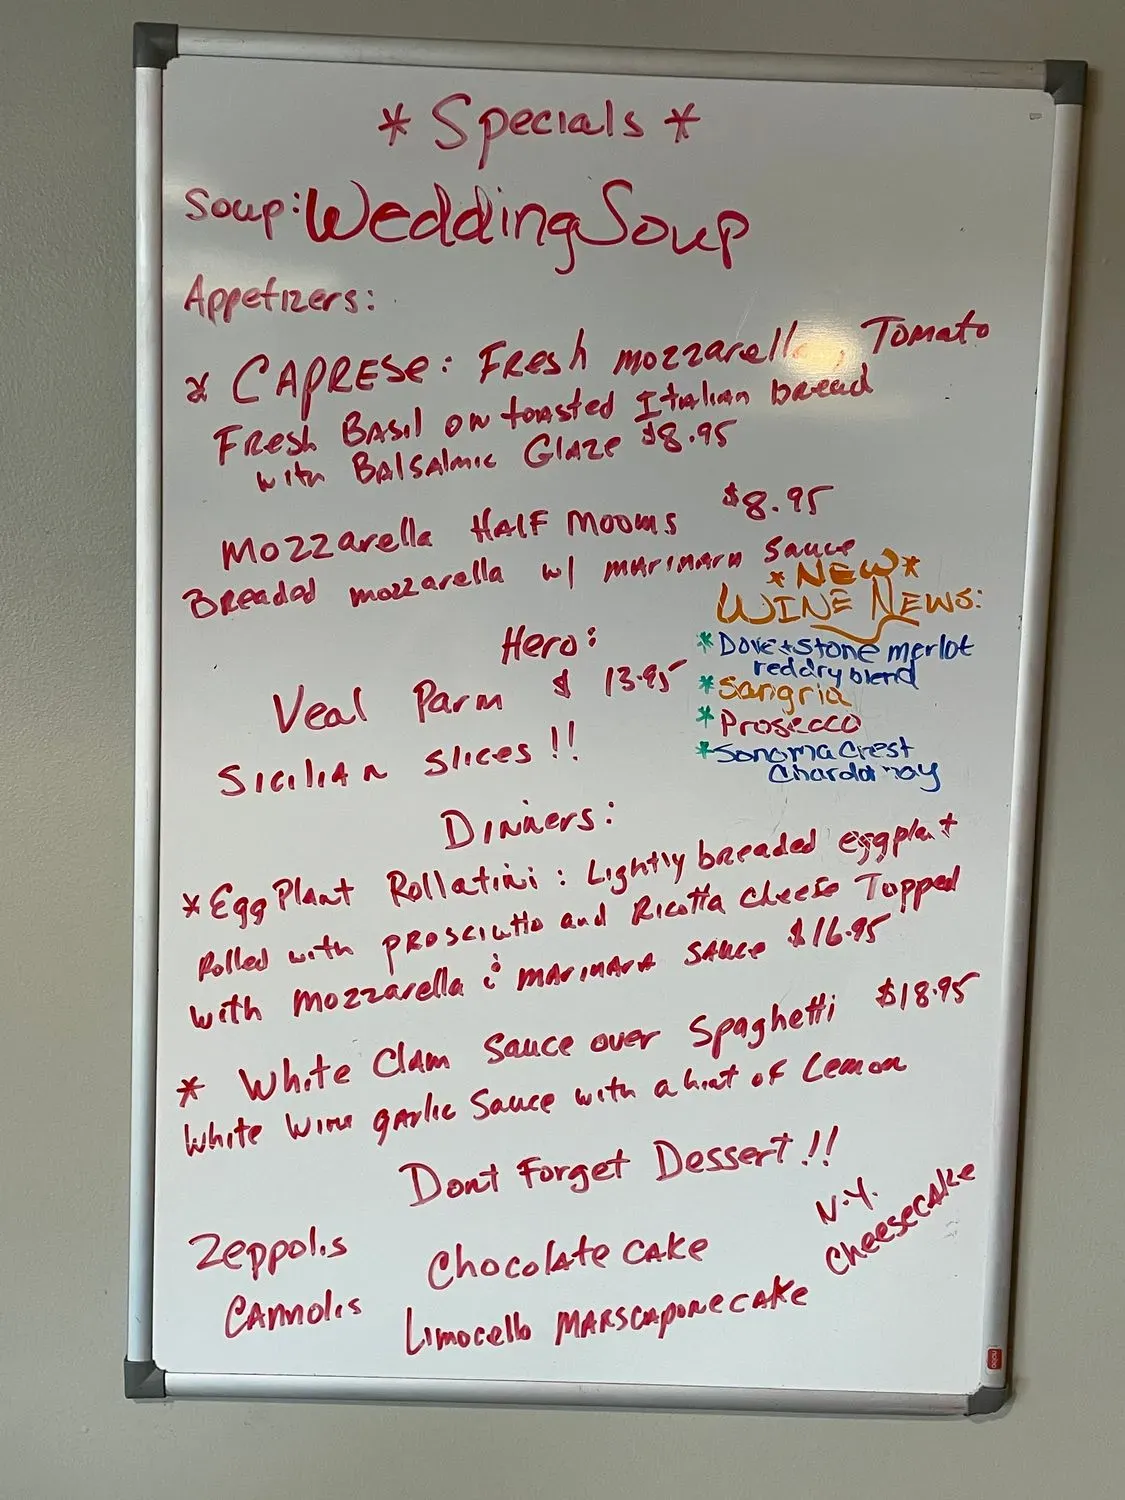 * Specials *
Soup: Wedding Soup
Appetizers:
* CAPRESE: Fresh mozzarella, Tomato
Fresh Basil on toasted Italian bread
with Balsalmic Glaze $8.95
Mozzarella Half Mooms $8.95
Breaded mozzarella w/ marinara sauce
*NEW*
WINE NEWS:
* Dove + stone merlot
red dry blend
* Sangria
* Prosecco
* Sonoma Crest
Chardonnay
Hero:
Veal Parm $ 13.95
Sicilian Slices!!
Dinners:
* Egg Plant Rollatini: Lightly breaded eggplant
Rolled with prosciutto and Ricotta cheese Topped
with mozzarella & marinara sauce $16.95
* White Clam Sauce over Spaghetti $18.95
White Wine garlic Sauce with a hint of Lemon
Dont Forget Dessert!!
Zeppolis
Chocolate Cake
N.Y.
Cheesecake
Cannolis
Limocello Marscapone cake
nobo